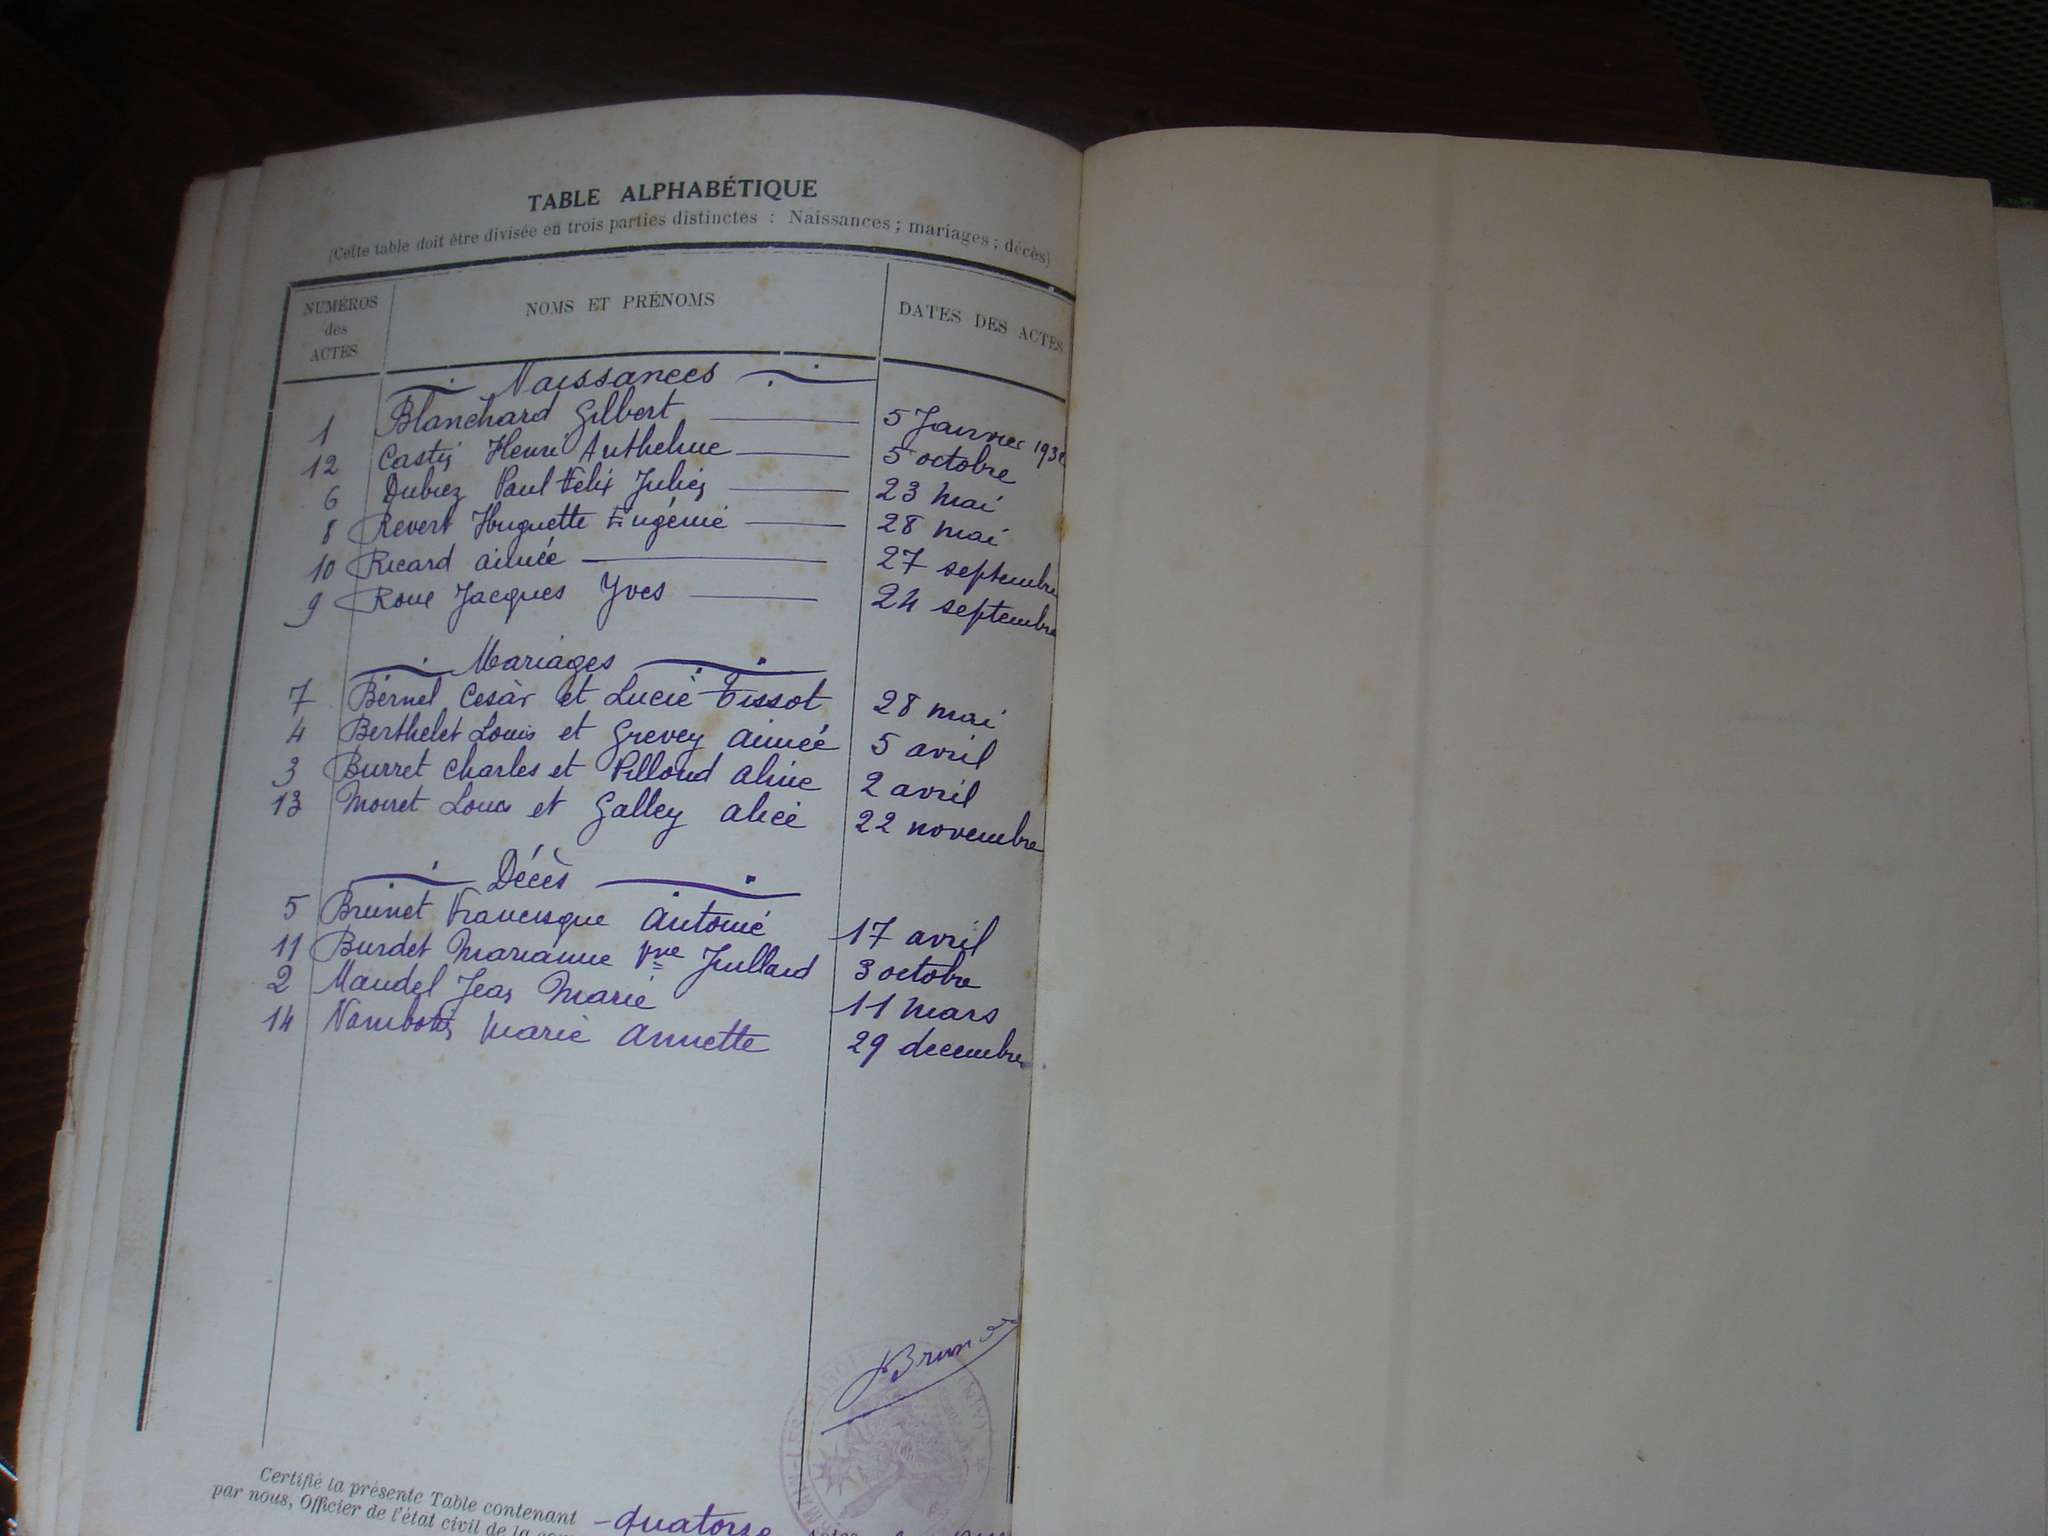 TABLE ALPHABÉTIQUE
(Cette table doit être divisée en trois parties distinctes : Naissances ; mariages ; décès)
NUMÉROS des ACTES NOMS ET PRÉNOMS DATES DES ACTES
Naissances
1 Blanchard Gilbert 5 Janvier
12 Henri Anthelme 5 octobre
6 Paul Félix 23 mai
8 Revert Huguette Eugénie 28 mai
10 Ricard aimée 27 septembre
9 Roux Jacques Yves 24 septembre
Mariages
7 Bernel Cesàr et Lucie Tissot 28 mai
4 Berthelet Louis et Grevey aimée 5 avril
3 Burret Charles et Pilloud aline 2 avril
13 Moiret Louis et Galley alice 22 novembre
Décès
5 Brunet Francisque antoine 17 avril
11 Burdet Marianne Vve Jullard 3 octobre
2 Mandel Jean Marie 11 mars
14 Marie annette 29 decembre
Certifié la présente Table contenant - quatorze
par nous, Officier de l'état civil de la